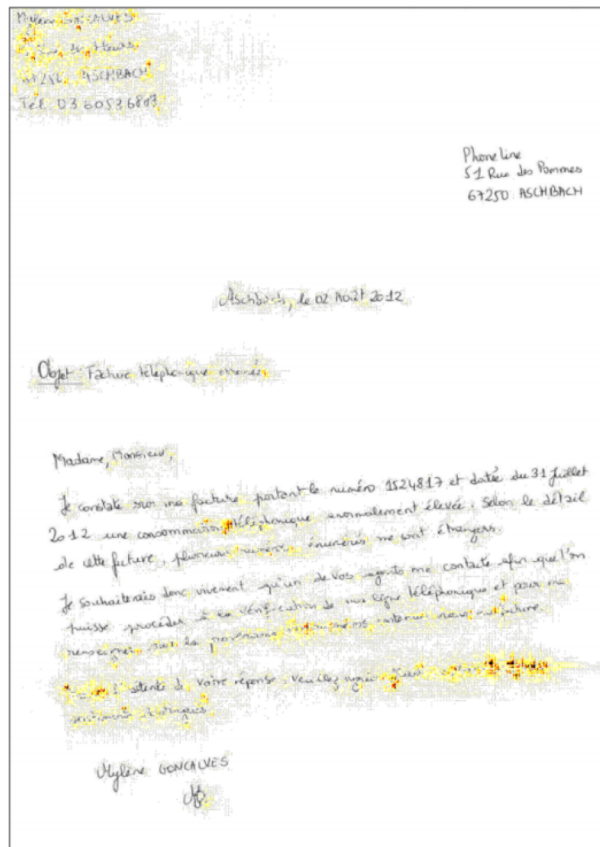 Mylène GONCALVES
Rue des fleurs
ASCHBACH
Tel. 03 60536807
Phoneline
51 Rue des Pommes
67250 ASCHBACH
Aschbach, le 02 Août 2012
Objet: Facture téléphonique erronée
Madame, Monsieur,
Je constate sur ma facture portant le numéro 1524817 et datée du 31 juillet
2012 une consommation téléphonique anormalement élevée. Selon le détail
de cette facture, plusieurs numéros énumérés me sont étrangers.
Je souhaiterais donc vivement qu'un de vos agents me contacte afin que l'on
puisse procéder à la vérification de ma ligne téléphonique et pour me
renseigner sur la provenance
attente de votre réponse, veuillez
sentiments distingués
Mylène GONCALVES